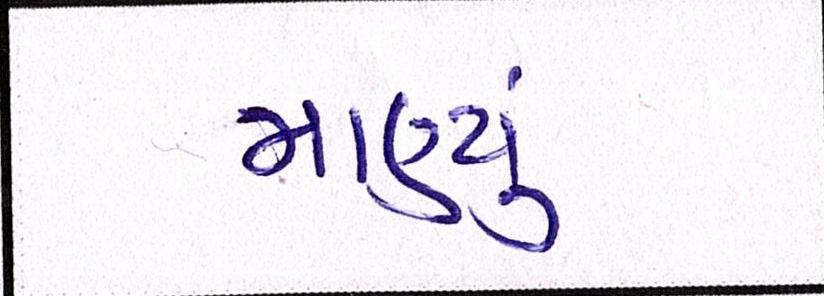 માણ્યું